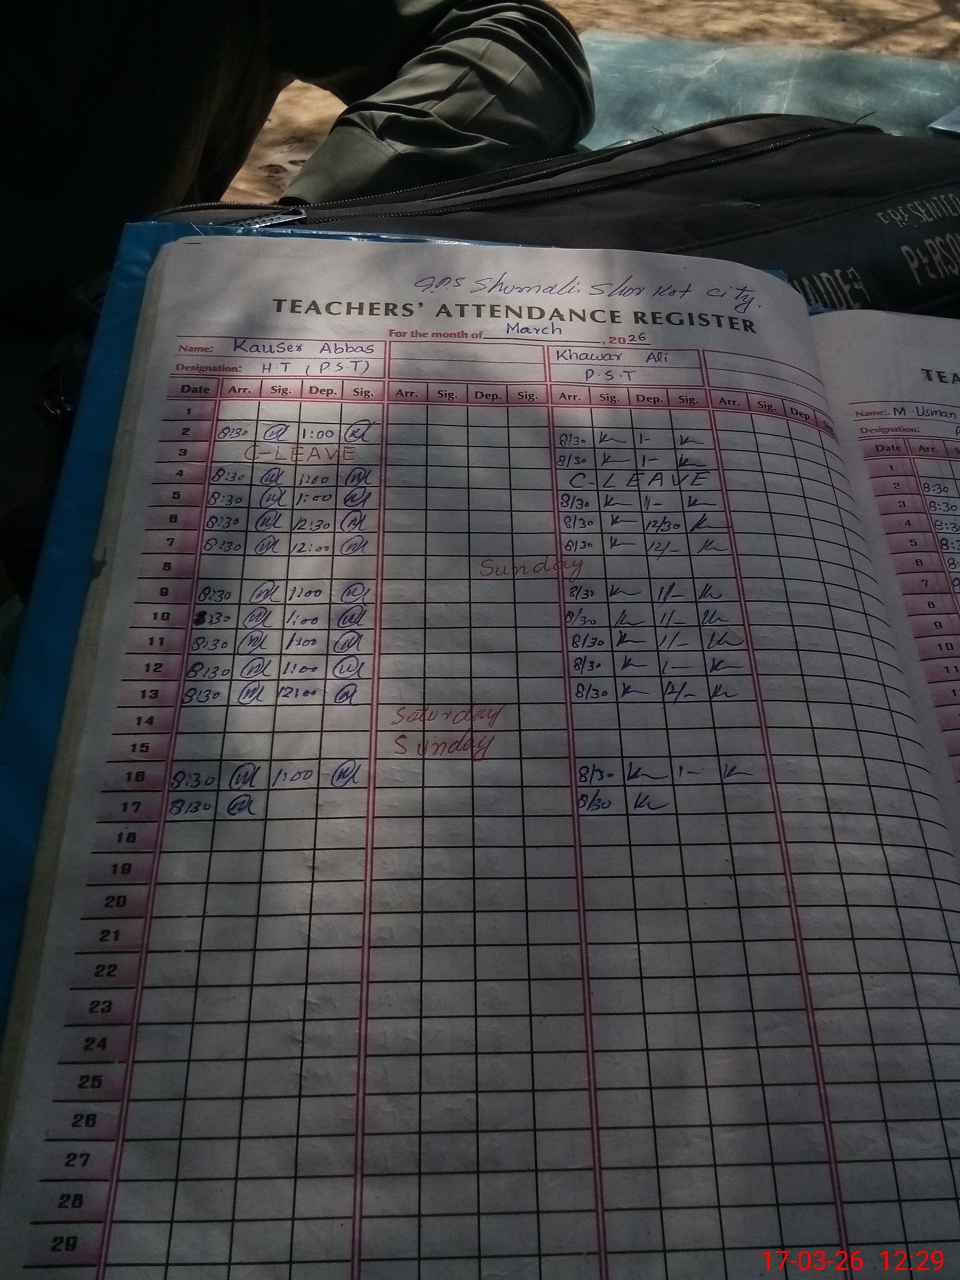 PRESENTED
PERSON
G.P.S Shumali Shor Kot city.
TEACHERS' ATTENDANCE REGISTER
For the month of March, 2026
Name: Kauser Abbas Khawar Ali
Designation: H.T (P.S.T) P.S.T
Date Arr. Sig. Dep. Sig. Arr. Sig. Dep. Sig. Arr. Sig. Dep. Sig. Arr. Sig. Dep.
1
2 8:30 1:00 8/30 1-
3 C-LEAVE 8/30 1-
4 8:30 1:00 C-LEAVE
5 8:30 1:00 8/30 1-
6 8:30 12:30 8/30 12/30
7 8:30 12:00 8/30 12/-
8 Sunday
9 8:30 1:00 8/30 1/-
10 8:30 1:00 8/30 1/-
11 8:30 1:00 8/30 1/-
12 8:30 1:00 8/30 1-
13 8:30 12:00 8/30 12/-
14 Saturday
15 Sunday
16 8:30 1:00 8/30 1-
17 8:30 8/30
18
19
20
21
22
23
24
25
26
27
28
29
TEA
Name: M. Usman
Designation:
Date Arr.
1
2 8:30
3 8:30
4 8:30
5 8:3
6
7
8
9
10
11
12
17-03-26 12:29